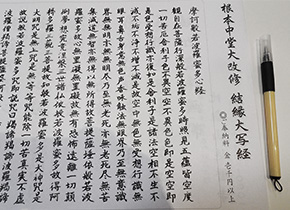 根本中堂大改修 結縁大写経
◎ご奉納料 金壱千円以上
摩訶般若波羅蜜多心経
観自在菩薩行深般若波羅蜜多時照見五蘊皆空度
一切苦厄舎利子色不異空空不異色色即是空空即
是色受想行識亦復如是舎利子是諸法空相不生不
滅不垢不浄不増不減是故空中無色無受想行識無
眼耳鼻舌身意無色声香味触法無眼界乃至無意識
界無無明亦無無明尽乃至無老死亦無老死尽無苦
集滅道無智亦無得以無所得故菩提薩埵依般若波
羅蜜多故心無罣礙無罣礙故無有恐怖遠離一切顛
倒夢想究竟涅槃三世諸仏依般若波羅蜜多故得阿
耨多羅三藐三菩提故知般若波羅蜜多是大神呪是
大明呪是無上呪是無等等呪能除一切苦真実不虚
故説般若波羅蜜多呪即説呪曰羯諦羯諦波羅羯諦
波羅僧羯諦菩提